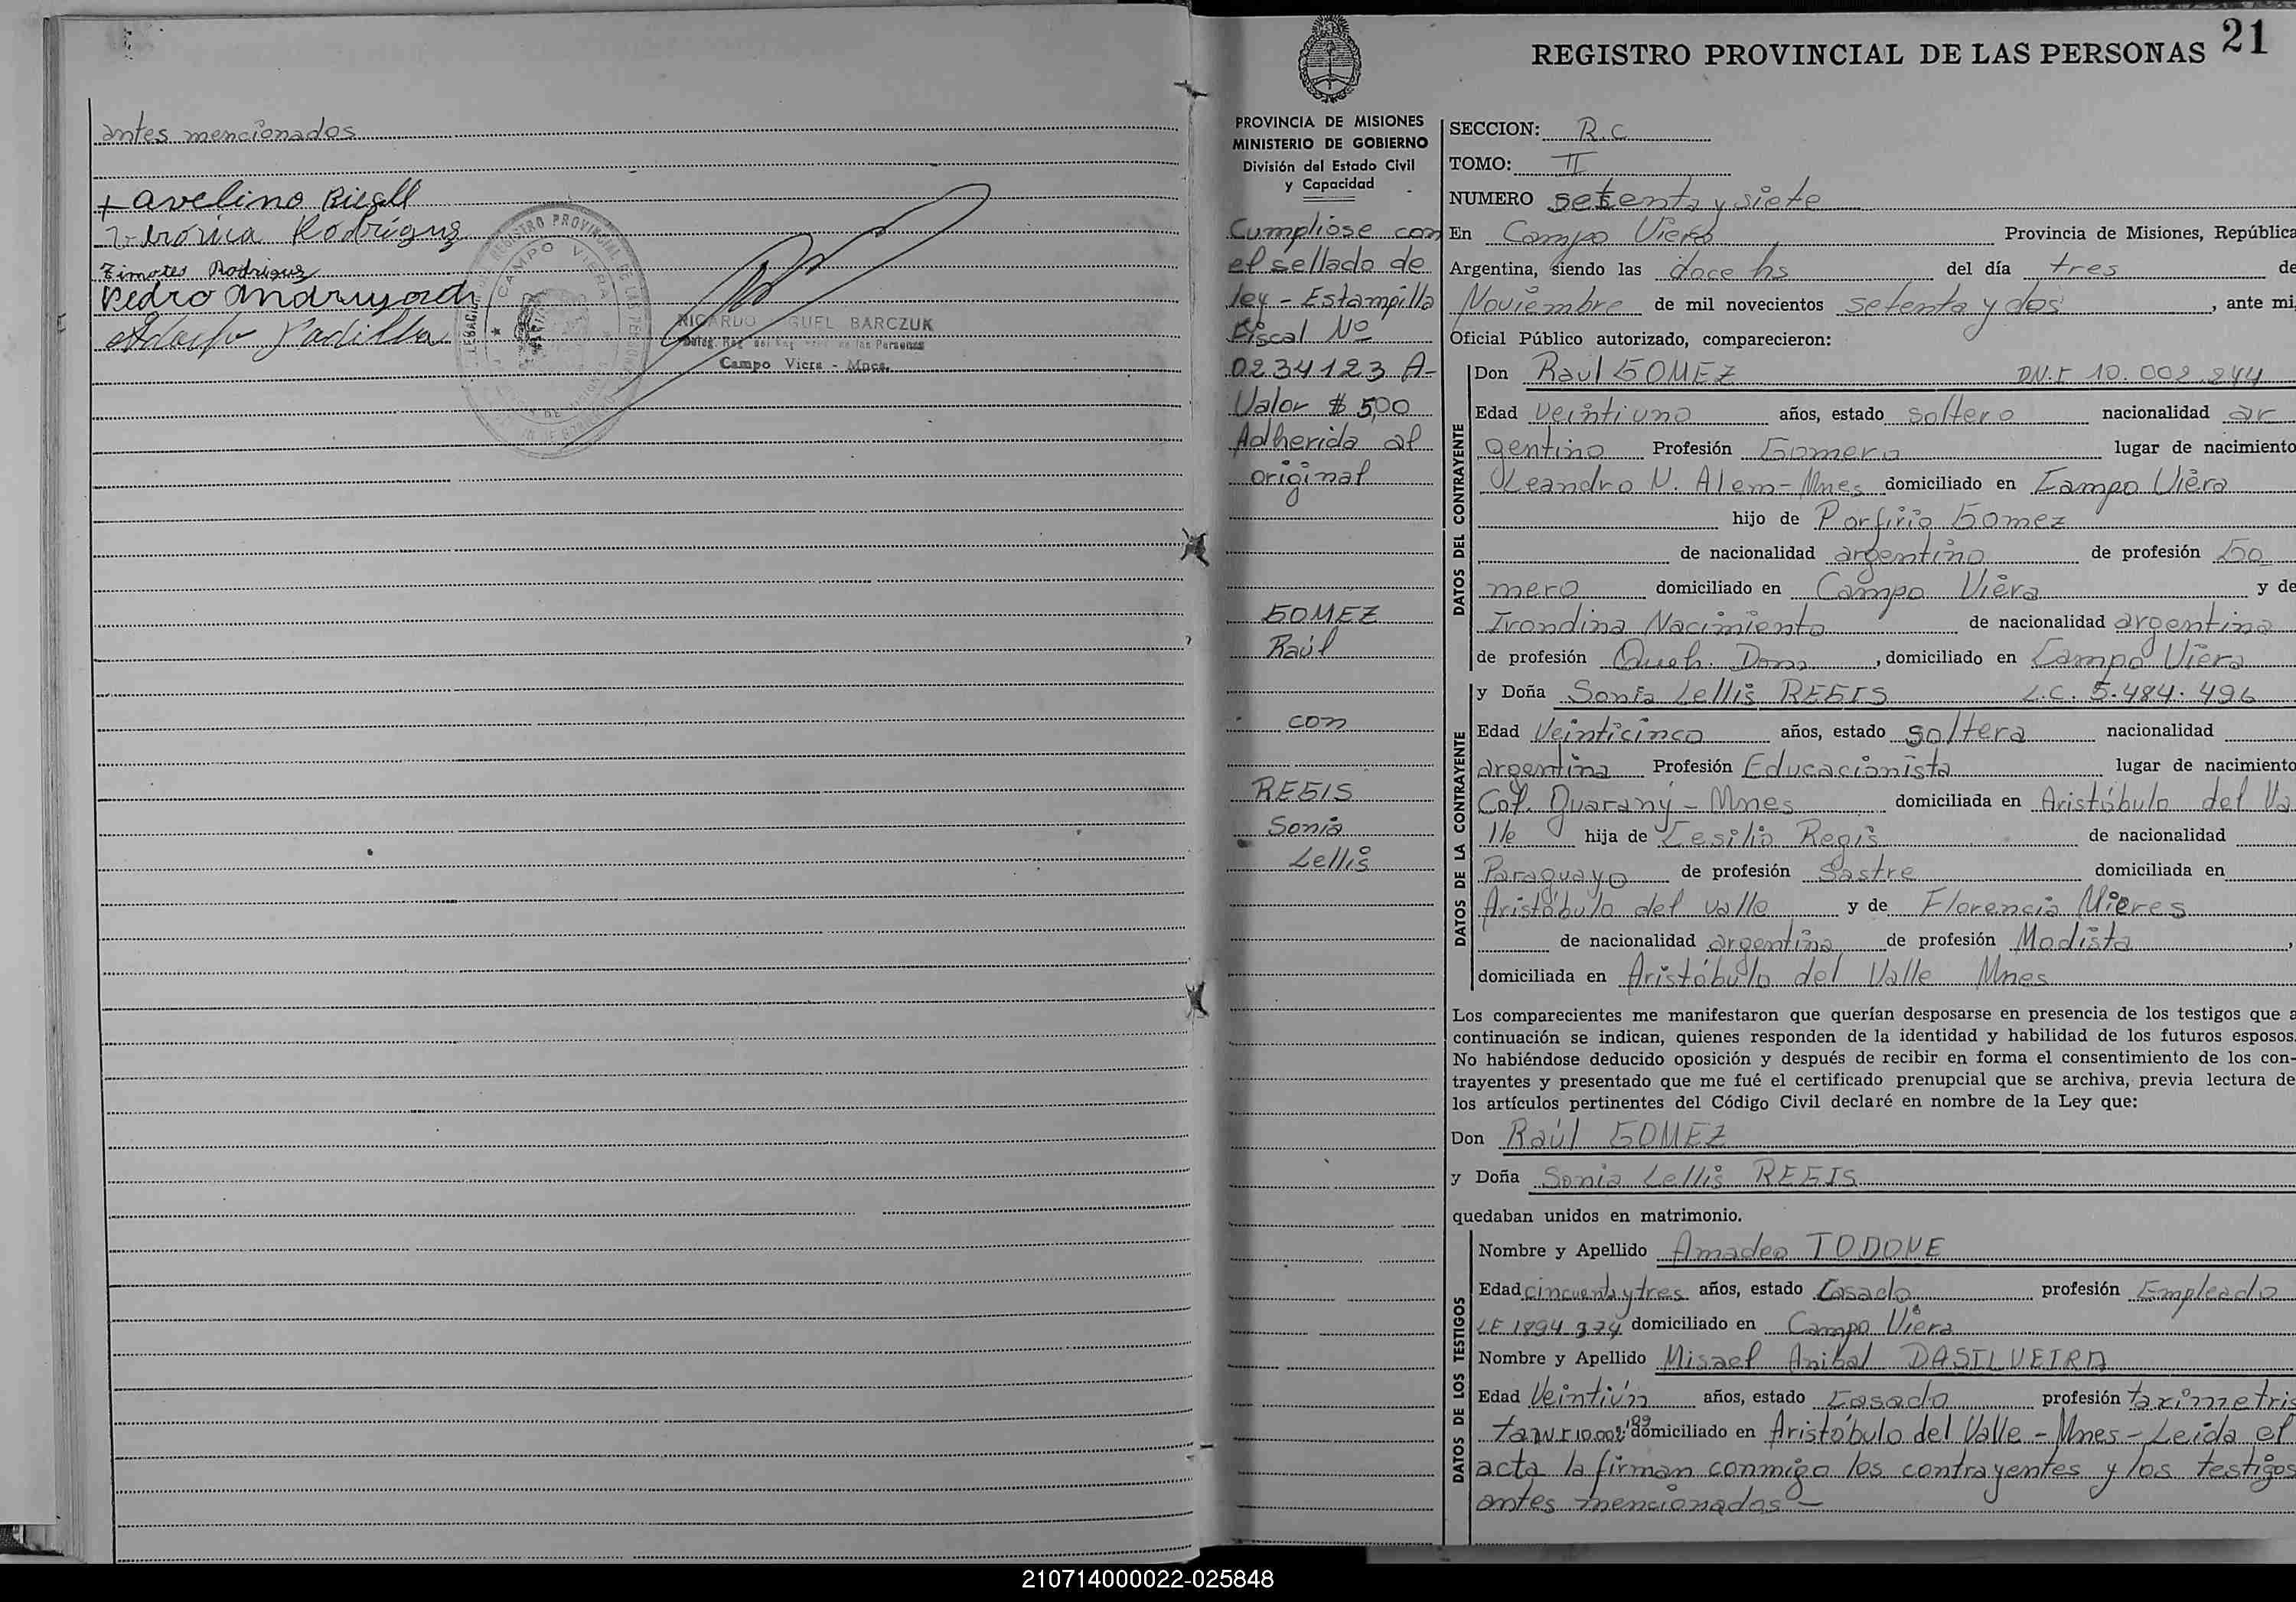 antes mencionados
+ Avelino
Verónica Rodríguez
Timoteo Rodriguez
Pedro
Adolfo Padilla
REGISTRO PROVINCIAL DE LAS PERSONAS
CAMPO VIERA
RICARDO MIGUEL BARCZUK
Campo Viera - Mnes.
REGISTRO PROVINCIAL DE LAS PERSONAS 21
PROVINCIA DE MISIONES
MINISTERIO DE GOBIERNO
División del Estado Civil
y Capacidad
Cumplióse con
el sellado de
ley - Estampilla
Fiscal Nº
0234123 A-
Valor $ 5,00
Adherida al
original
GOMEZ
Raúl
con
REGIS
Sonia
Lellis
SECCION: R.C
TOMO: II
NUMERO setenta y siete
En Campo Viera, Provincia de Misiones, República
Argentina, siendo las doce hs del día tres de
Noviembre de mil novecientos setenta y dos, ante mi,
Oficial Público autorizado, comparecieron:
DATOS DEL CONTRAYENTE
Don Raul GOMEZ DN.I 10.002.244
Edad Veintiuno años, estado soltero nacionalidad ar
gentino Profesión Gomero lugar de nacimiento
Leandro N. Alem - Mnes domiciliado en Campo Viera
hijo de Porfirio Gomez
de nacionalidad argentino de profesión Go
mero domiciliado en Campo Viera y de
Irondina Nacimiento de nacionalidad argentina
de profesión Queh. Dom, domiciliado en Campo Viera
DATOS DE LA CONTRAYENTE
y Doña Sonia Lellis REGIS L.C. 5.484.496
Edad Veinticinco años, estado soltera nacionalidad
argentina Profesión Educacionista lugar de nacimiento
Col. Guarany - Mnes domiciliada en Aristóbulo del Va
lle hija de Cesilio Regis de nacionalidad
Paraguayo de profesión Sastre domiciliada en
Aristóbulo del Valle y de Florencia Mieres
de nacionalidad argentina de profesión Modista,
domiciliada en Aristóbulo del Valle Mnes
Los comparecientes me manifestaron que querían desposarse en presencia de los testigos que a
continuación se indican, quienes responden de la identidad y habilidad de los futuros esposos.
No habiéndose deducido oposición y después de recibir en forma el consentimiento de los con-
trayentes y presentado que me fué el certificado prenupcial que se archiva, previa lectura de
los artículos pertinentes del Código Civil declaré en nombre de la Ley que:
Don Raúl GOMEZ
y Doña Sonia Lellis REGIS
quedaban unidos en matrimonio.
DATOS DE LOS TESTIGOS
Nombre y Apellido Amadeo TODONE
Edad cincuenta y tres años, estado Casado profesión Empleado
LE 1894 374 domiciliado en Campo Viera
Nombre y Apellido Misael Anibal DASILVEIRA
Edad Veintiún años, estado Casado profesión taximetris
ta domiciliado en Aristóbulo del Valle - Mnes - Leida el
acta la firman conmigo los contrayentes y los testigos
antes mencionados -
210714000022-025848